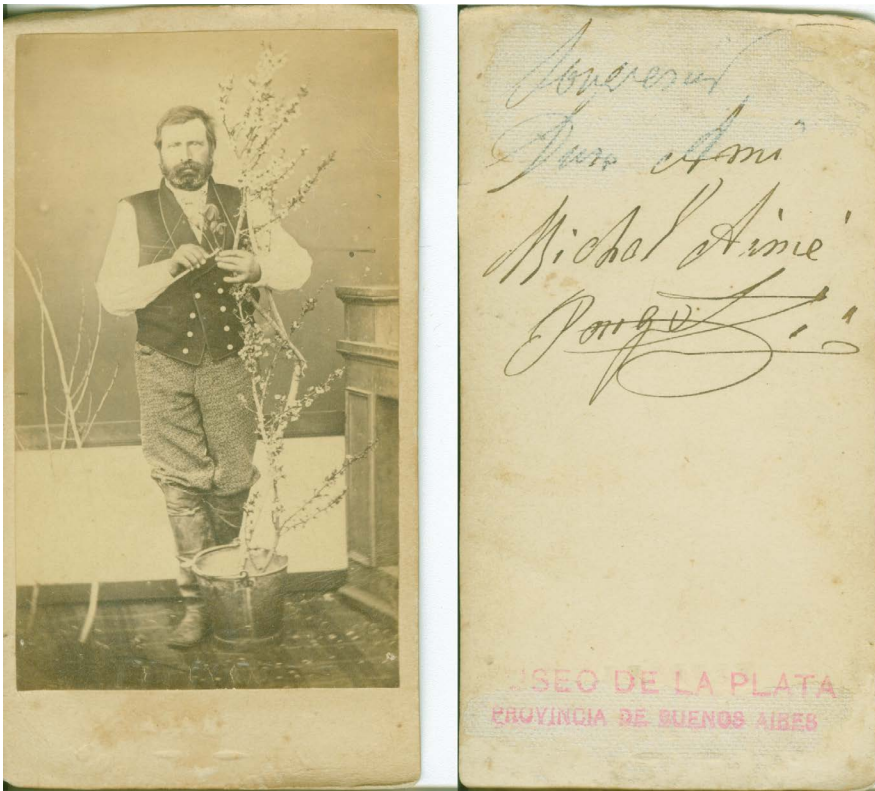 Souvenir
Ami
Michel Aimé
SEO DE LA PLATA
PROVINCIA DE BUENOS AIRES